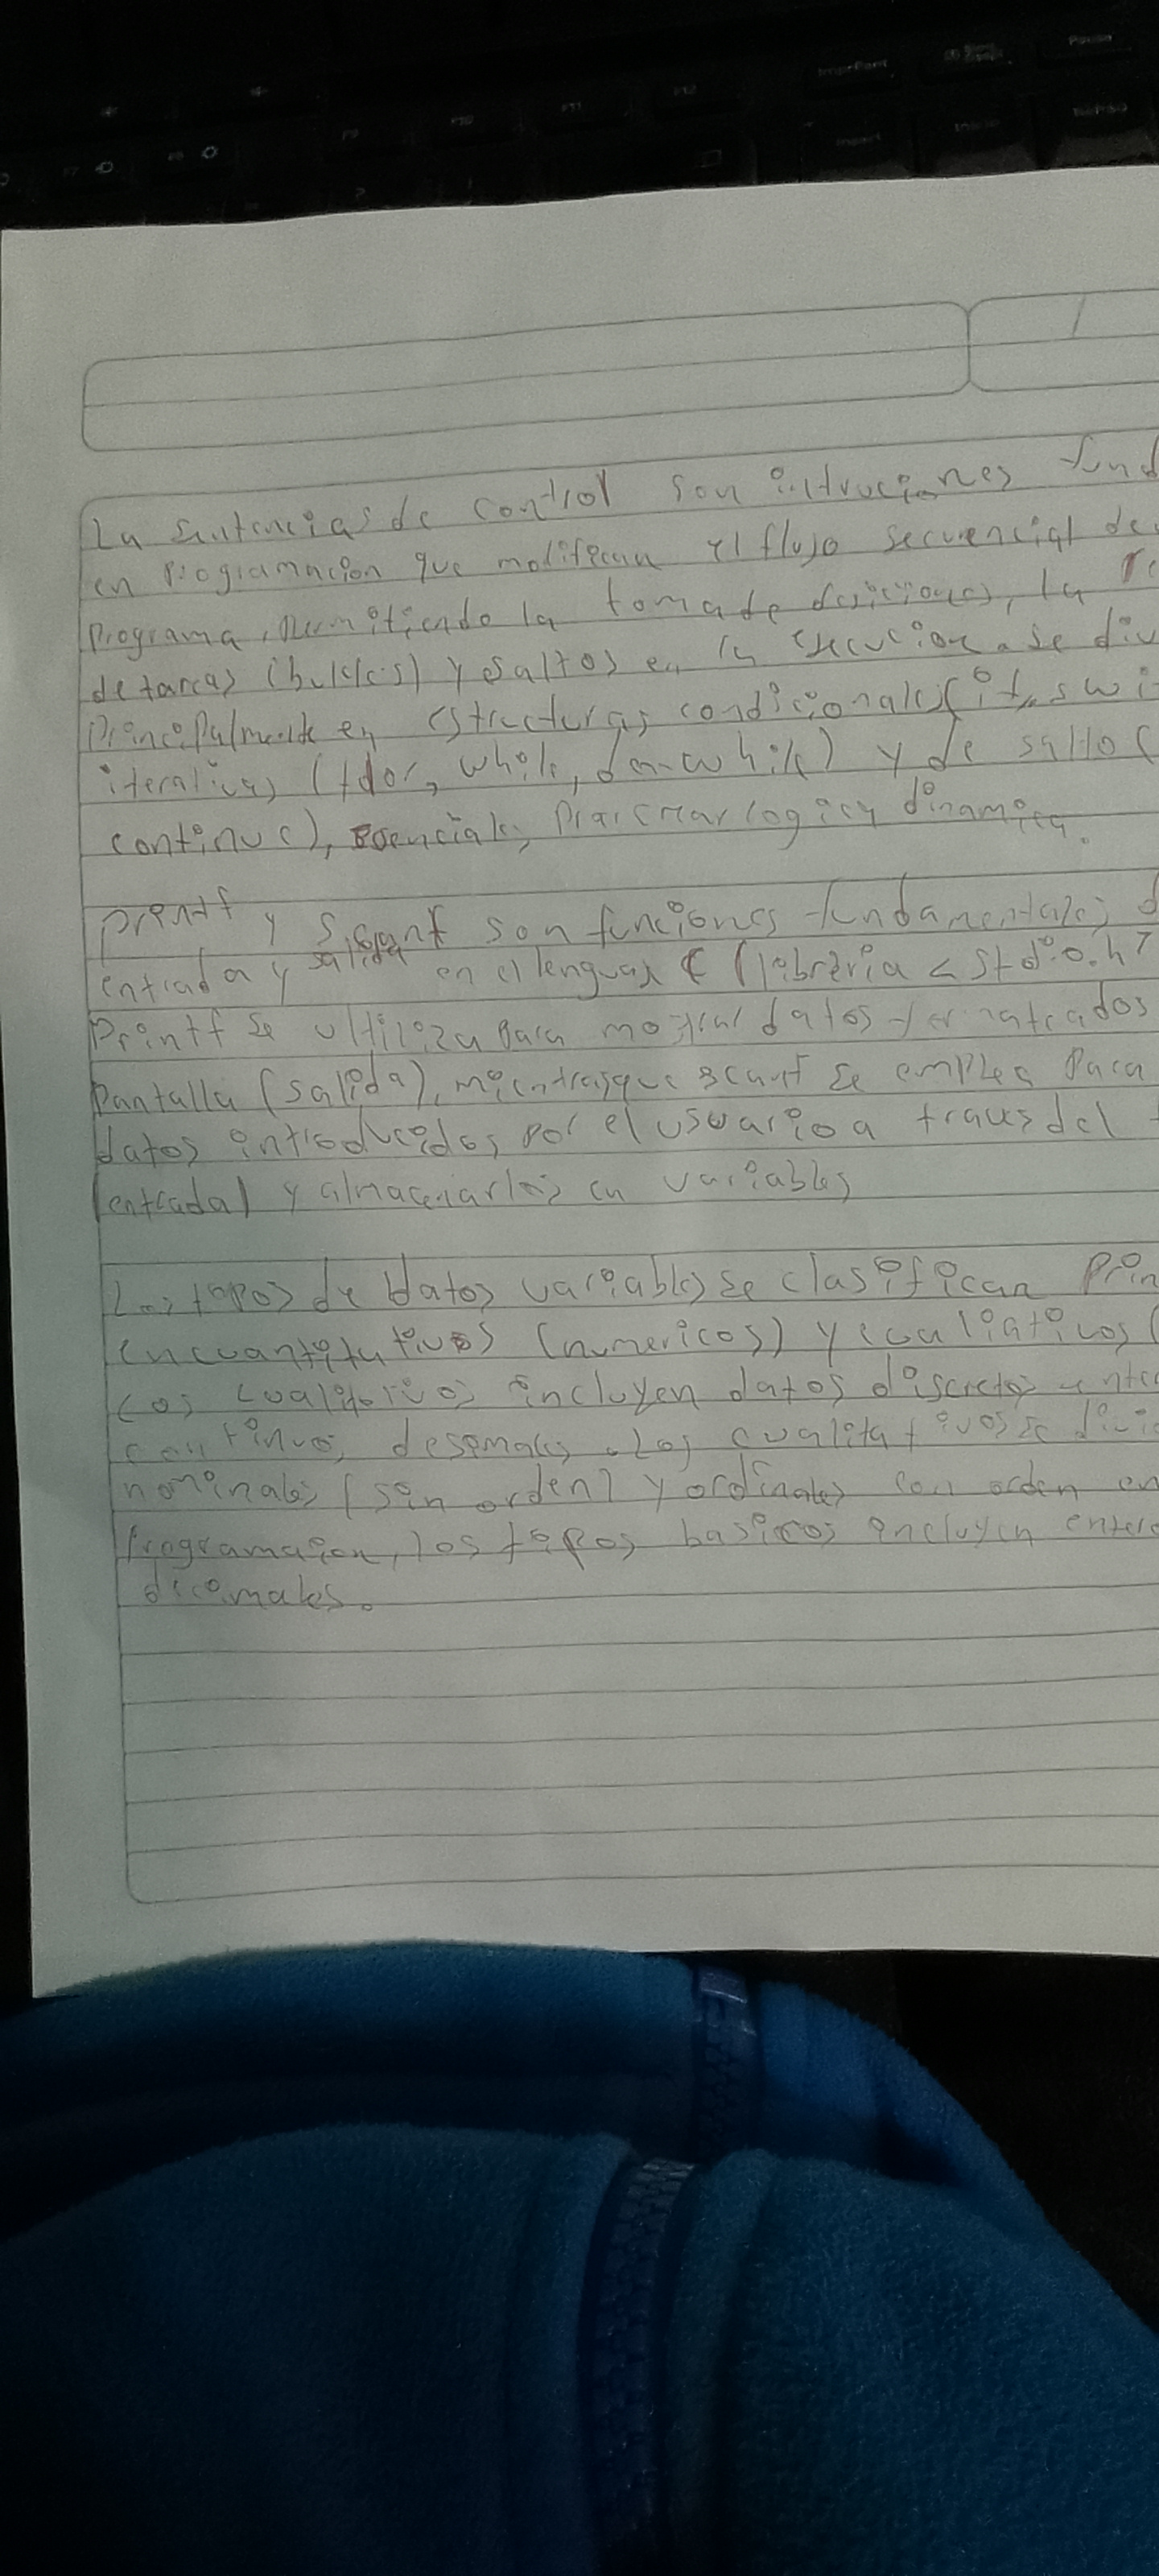 La sentencias de control son intruciones fund
en programacion que modifican el flujo secuencial de
programa, permitiendo la toma de desiciones, la re
de tareas (bucles) y saltos en la ejecucion. se div
principalmente en estructuras condicionales (if, swi
iterativas (fdor, while, do-while) y de salto (
continue), esenciales para crear logica dinamica.
printf y scanf son funciones fundamentales d
entrada y salida en el lenguaje C (libreria < stdio.h>
Printf se ultiliza para mostrar datos formateados
Pantalla (salida), mientras que scanf se emplea para
datos introducidos por el usuario a traves del t
(entrada) y almacenarlos en variables
Los tipos de datos variables se clasifican prin
en cuantitativos (numericos) y cualiativos (
Los cualitativos incluyen datos discretos ente
continuos desimales. Los cualitativos se divi
nominales (sin orden) y ordinales con orden en
Programacion, los tipos basicos incluyen entero
decimales.